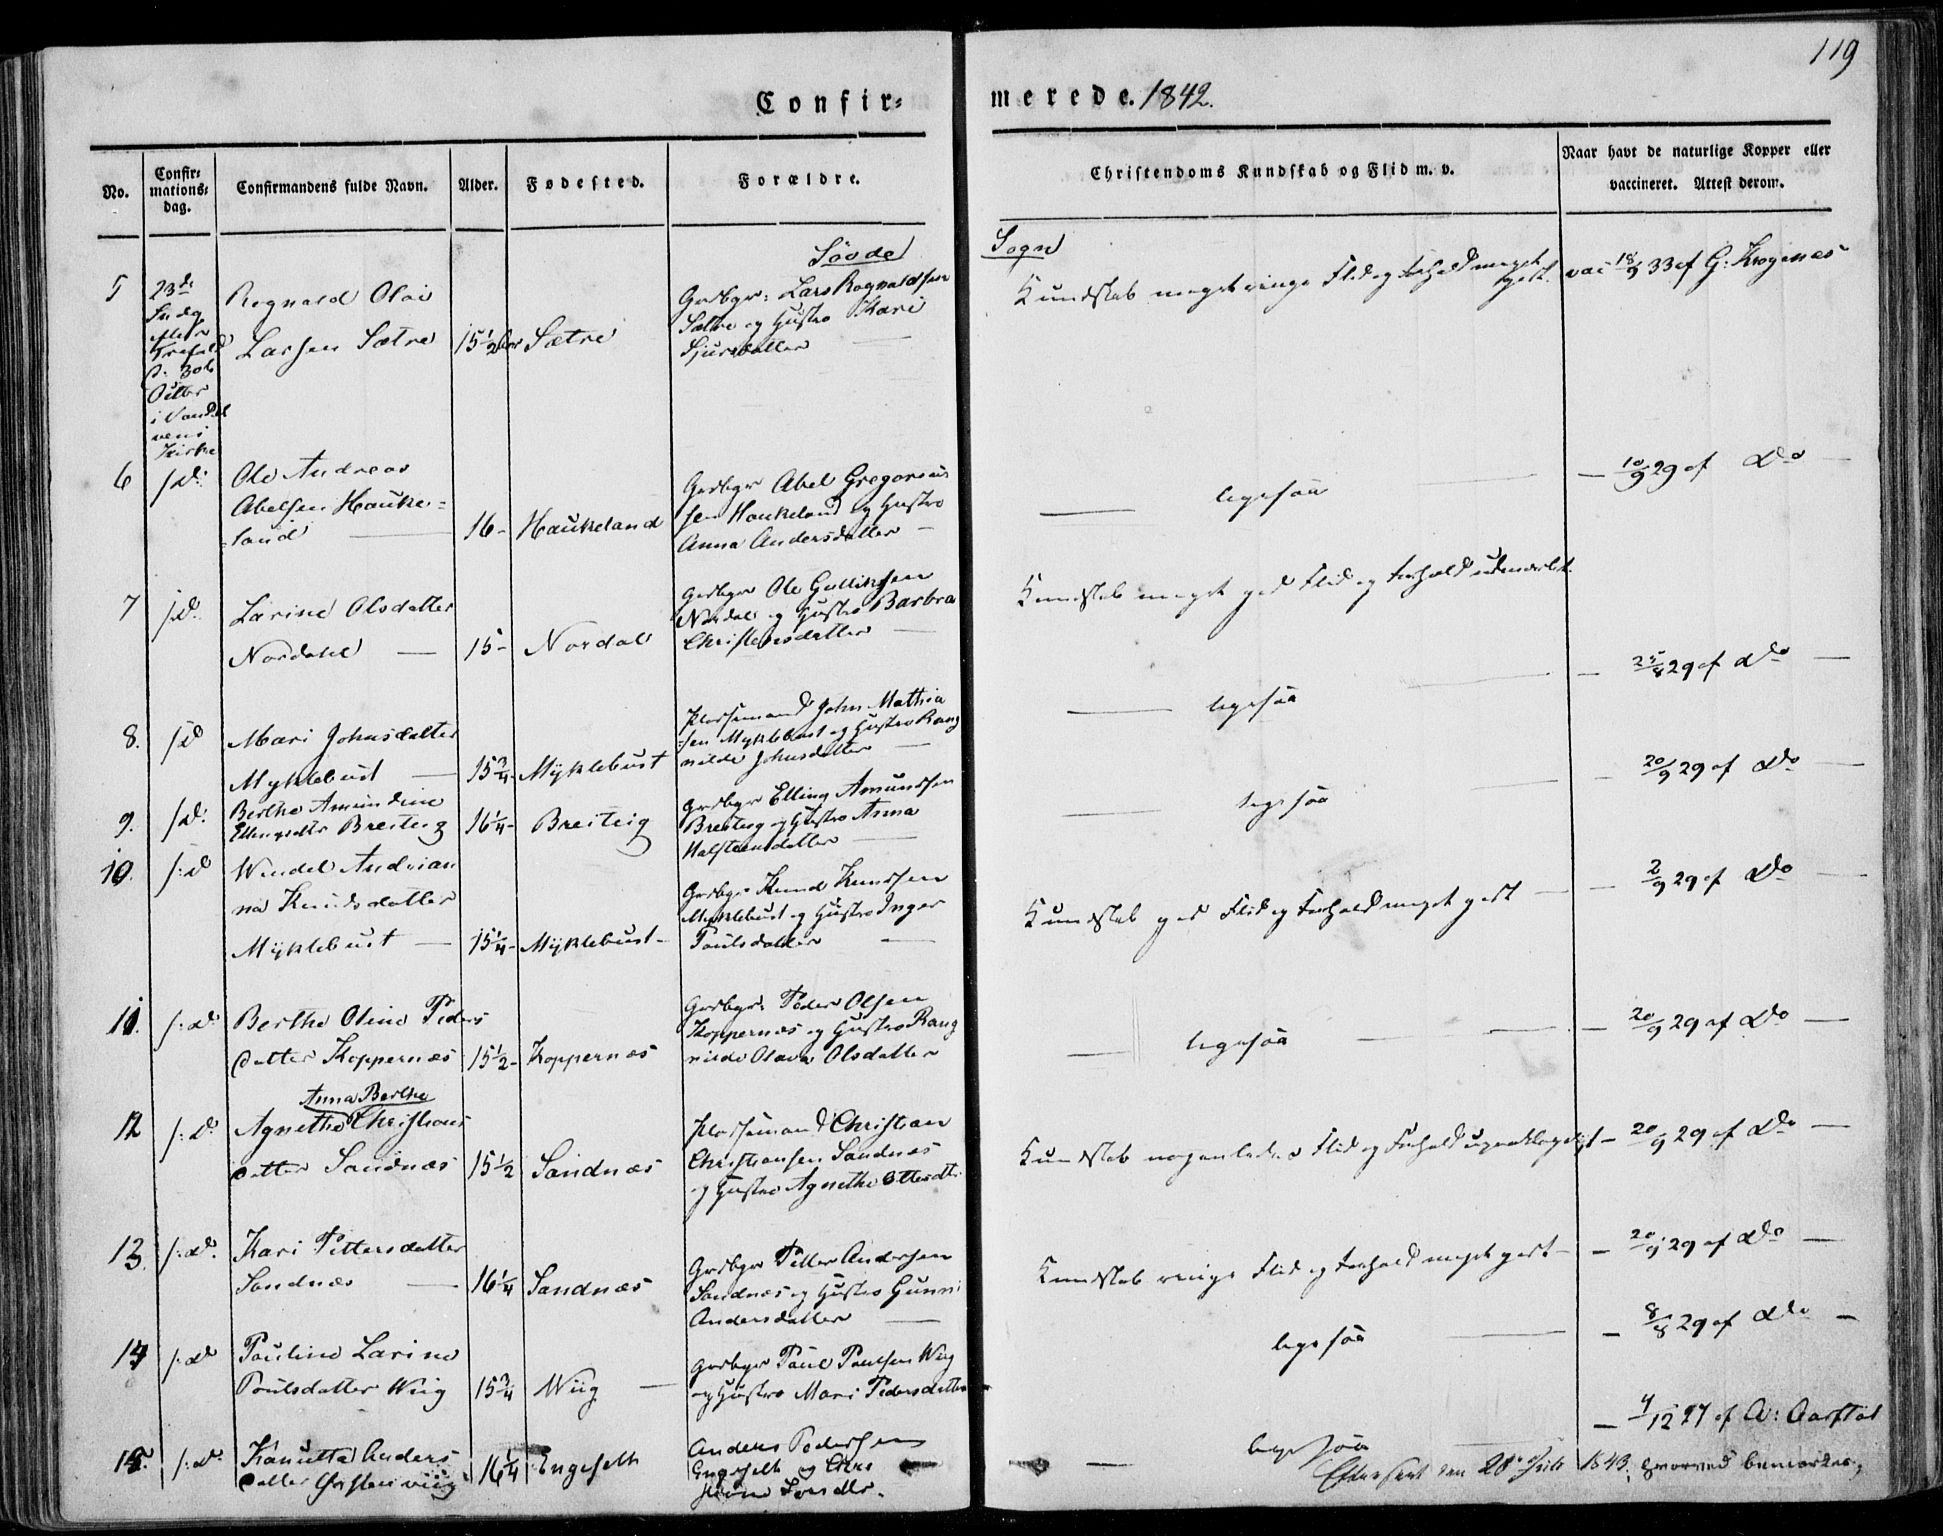 119
Confir=
merede. 1842.
No.
Confir=
mations=
dag.
Confirmandens fulde Navn.
Alder.
Fødested.
Forældre.
Christendoms Kundskab og Flid m. v.
Naar havt de naturlige Kopper eller
vaccineret. Attest derom.
Søvde
Sogn
5
23de
Søndag
efter
Trefold
d: 30te
Octbr
i Vandel
vens
Kirke
Rognald Olai
Larsen Sætre
15 1/2
Sætre
Grdbgr: Lars Rognaldsen
Sætre og Hustro Kari
Sjursdatter
Kundskab meget ringe Flid og Forhold meget
godt.
vac 18/9 33 af G: Krognæs
6
s:d:
Ole Andreas
Abelsen Hauke=
=land
16-
Haukeland
Grdbgr Abel Gregorius
sen Haukeland og Hustro
Anna Andersdatter
ligesaa
10/9 29 af Do
7
s:d:
Larine Olsdatter
Nordahl
15-
Nordal
Grdbgr Ole Gulliksen
Nordal og Hustro Barbra
Christensdatter
Kundskab meget god Flid og Forhold udmærket
25/8 29 af Do
8.
s:d
Mari Johnsdatter
Myklebust
15 3/4-
Myklebust
Pladsemand John Mathia
=sen Myklebust og Hustro Rang
nilde Johnsdatter
ligesaa
20/9 29 af Do
9.
s:d:
Berthe Amundine
Ellingsdtr Breiteig
16 1/4-
Breiteig
Grdbgr Elling Amundsen
Breiteig og Hustro Anna
Halsteensdatter
ligesaa
2/9 29 af Do
10.
s:d
Windel Andrian
na Knudsdatter
Myklebust
15 1/4-
Myklebust-
Grdbgr Knud Knudsen
Myklebust og Hustro Inger
Poulsdatter
Kundskab god Flid og Forhold meget godt
11.
s:d:
Berthe Oline Peders
datter Koppernæs
15 1/2-
Koppernæs
Grdbgr: Peder Olsen
Koppernæs og Hustro Rang
nilde Olava Olsdatter
ligesaa
20/9 29 af Do
12
s:d:
Anna Berthe
Agnethe Christians
datter Sandnæs
15 1/2
Sandnæs
Pladsemand Christian
Christiansen Sandnæs
og Hustro Agnethe Ottersdtr
Kundskab nogenledes Flid og Forhold upaaklageligt
20/9 29 af Do
13
s:d:
Kari Pettersdatter
Sandnæs
16 1/4
Sandnæs
Grdbgr Petter Andersen
Sandnæs og Hustro Gunni
Andersdatter
Kundskab ringe Flid og Forhold meget godt
20/9 29 af Do
14
s:d:
Pauline Larine
Poulsdatter Wiig
15 3/4
Wiig
Grdbgr Paul Paulsen Wiig
og Hustro Mari Pedersdatter
ligesaa
8/8 29 af Do
15.
s:d:
Kanutta Anders
datter
16 1/4
Engeseth
Anders Pedersen
Engeseth og
ligesaa
4/12 27 af A: Aarflot
Efterseet den 28de Juli 1843, hvorved bemærkes,